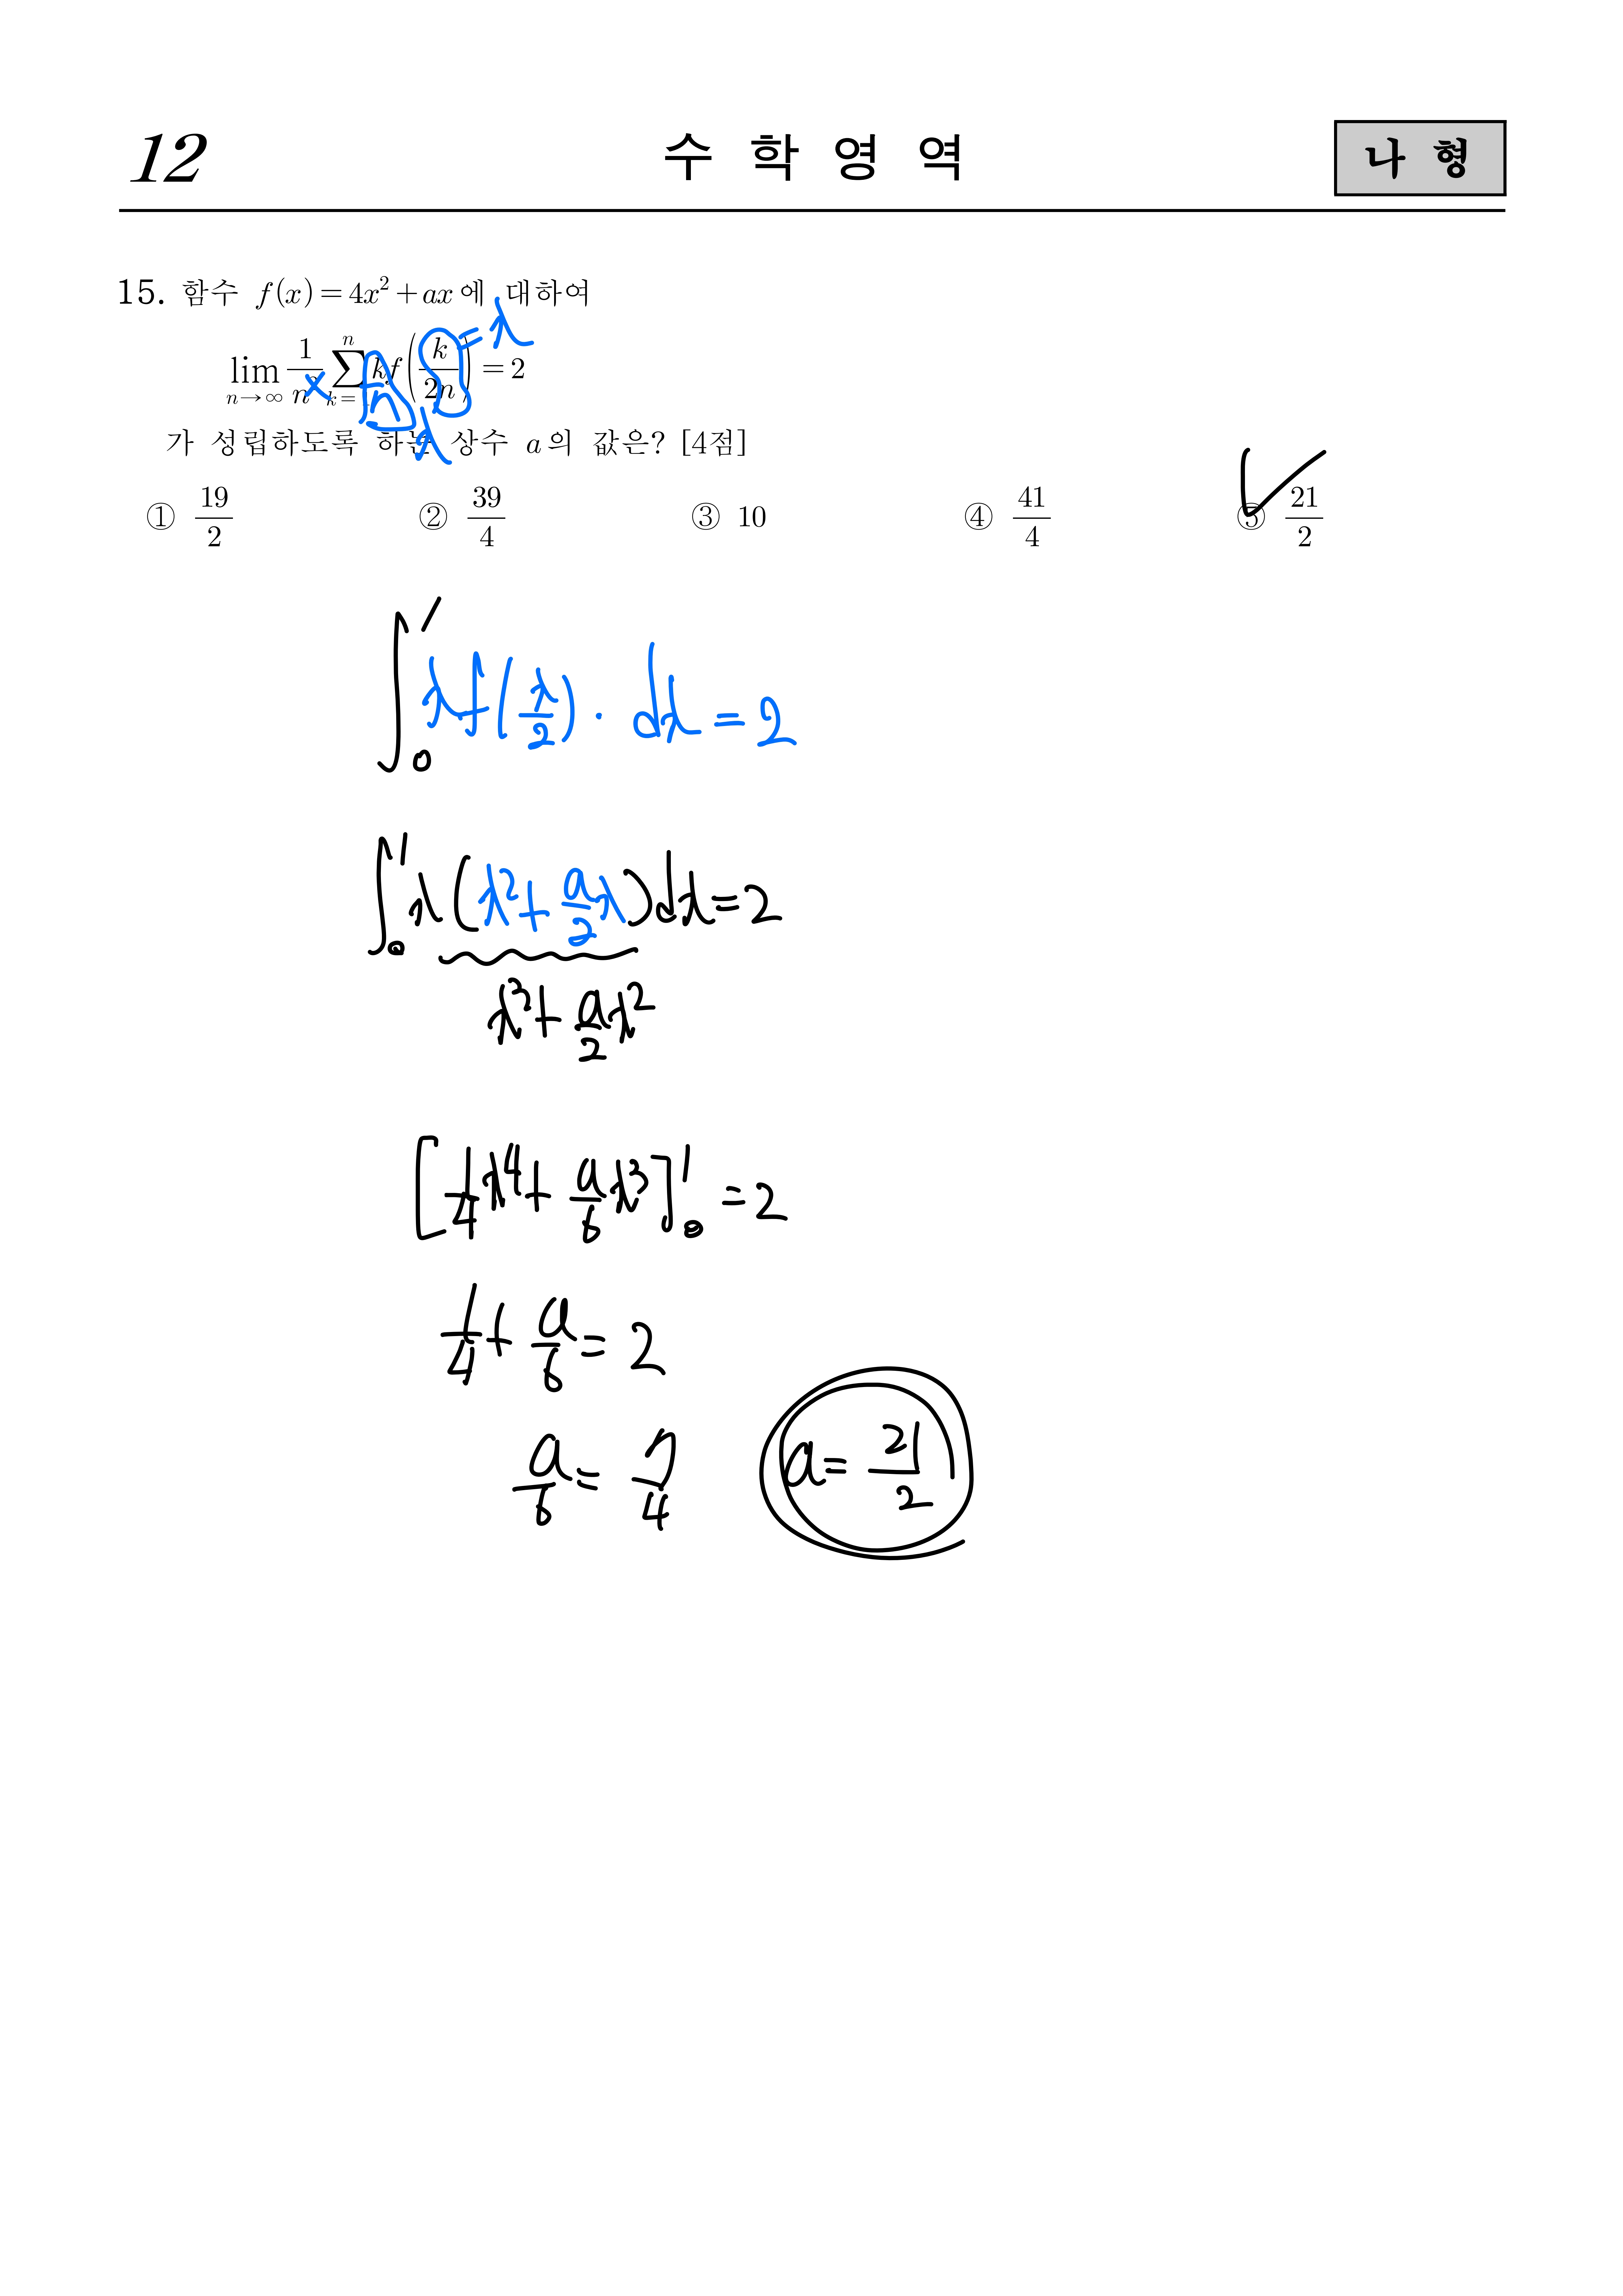 12 수 학 영 역 나 형
15. 함수 f(x)=4x²+ax에 대하여
lim n→∞ 1/n² ∑ k=1 n kf(k/2n)=2
=x
n
x
가 성립하도록 하는 상수 a의 값은? [4점]
① 19/2 ② 39/4 ③ 10 ④ 41/4 ⑤ 21/2
∫₀¹ xf(x/2)·dx=2
∫₀¹ x(x²+a/2x)dx=2
x³+a/2x²
[1/4x⁴+a/6x³]₀¹=2
1/4+a/6=2
a/6=7/4 a=21/2